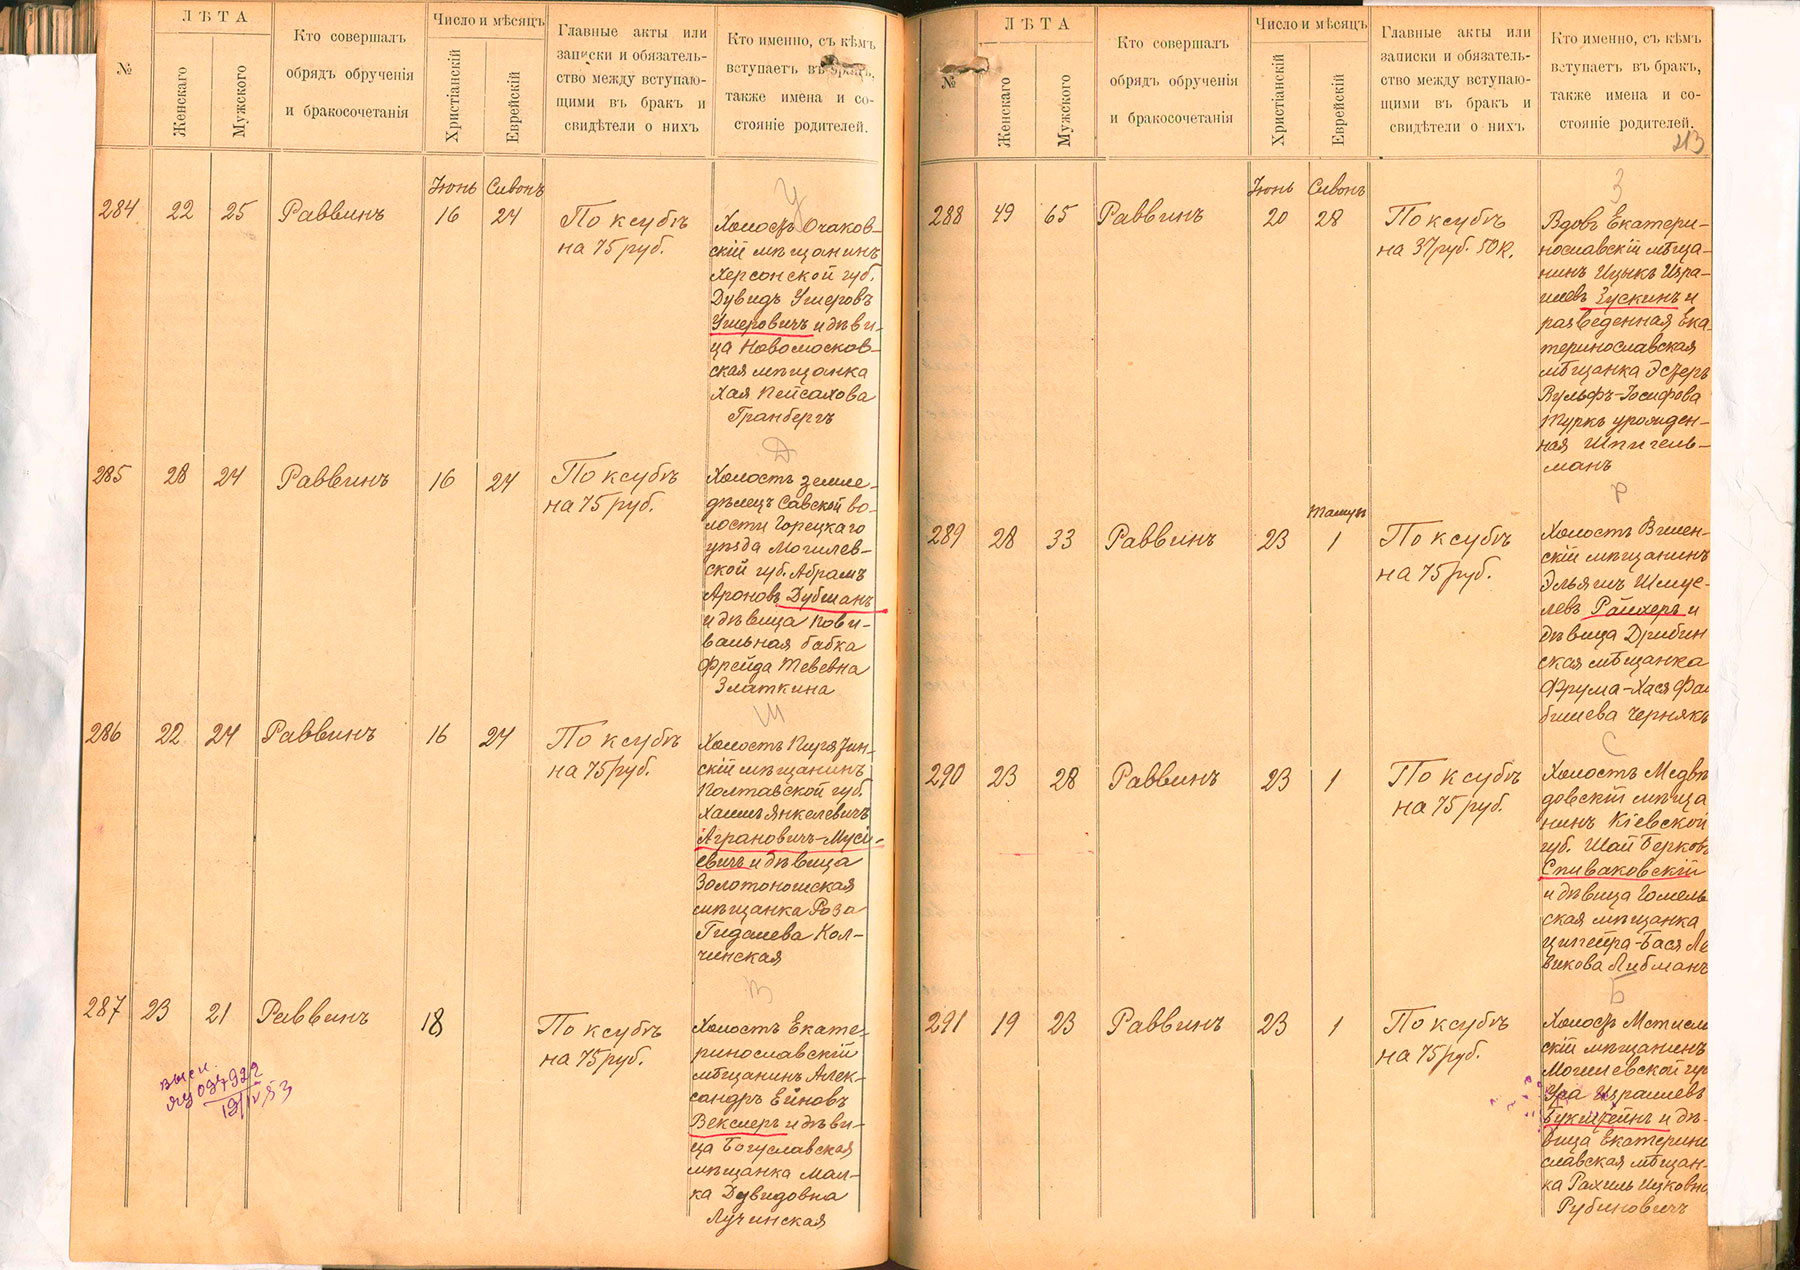 №
ЛѢТА
Женскаго
Мужского
Кто совершалъ
обрядъ обрученія
и бракосочетанія
Число и мѣсяцъ
Христіанскій
Еврейскій
Главные акты или
записки и обязатель-
ство между вступаю-
щими въ бракъ и
свидѣтели о нихъ
Кто именно, съ кѣмъ
вступаетъ въ бракъ,
также имена и со-
стояніе родителей.
Іюнь Сивонъ
У
284 22 25 Раввинъ 16 24
По ксубѣ
на 75 руб.
Холостъ Очаков-
скій мѣщанинъ
Херсонской губ.
Дувидъ Ушеровъ
Ушеровичъ и дѣви-
ца Новомосков-
ская мѣщанка
Хая Пейсахова
Гранбергъ
Д
285 28 24 Раввинъ 16 24
По ксубѣ
на 75 руб.
Холостъ земле-
дѣлецъ Савской во-
лости Горецкаго
уѣзда Могилев-
ской губ. Абрамъ
Ароновъ Дубманъ
и дѣвица Пови-
вальная бабка
Фрейда Тевевна
Златкина
Ш
286 22 24 Раввинъ 16 24
По ксубѣ
на 75 руб.
Холостъ
скій мѣщанинъ
Полтавской губ.
Хаимъ Янкелевичъ
Аграновичъ-Муси-
евичъ и дѣвица
Золотоношская
мѣщанка Роза
Гидалева Кол-
чинская
В
287 23 21 Раввинъ 18
По ксубѣ
на 75 руб.
Холостъ Екате-
ринославскій
мѣщанинъ Алек-
сандръ Ейновъ
Векслеръ и дѣви-
ца Богуславская
мѣщанка Мал-
ка Дувидовна
Лучинская
высл.
19/IV 53
№
ЛѢТА
Женскаго
Мужского
Кто совершалъ
обрядъ обрученія
и бракосочетанія
Число и мѣсяцъ
Христіанскій
Еврейскій
Главные акты или
записки и обязатель-
ство между вступаю-
щими въ бракъ и
свидѣтели о нихъ
Кто именно, съ кѣмъ
вступаетъ въ бракъ,
также имена и со-
стояніе родителей.
213
Іюнь Сивонъ
З
288 49 65 Раввинъ 20 28
По ксубѣ
на 37 руб. 50 к.
Вдовъ Екатери-
нославскій мѣща-
нинъ Ицыкъ Изра-
илевъ Зускинъ и
разведенная Ека-
теринославская
мѣщанка Эсѳеръ
Вульфъ-Іосифова
Туркъ урожден-
ная Шпигель-
манъ
Р
Тамузъ
289 28 33 Раввинъ 23 1
По ксубѣ
на 75 руб.
Холостъ Вилен-
скій мѣщанинъ
Эльяшъ Шмуе-
левъ Райхеръ и
дѣвица Дрибин
ская мѣщанка
Фрума-Хася Фай
бишева Чернякъ
С
290 23 28 Раввинъ 23 1
По ксубѣ
на 75 руб.
Холостъ Медвѣ
довскій мѣща
нинъ Кіевской
губ. Шай Берковъ
Спиваковскій
и дѣвица Гомель
ская мѣщанка
Ципейра-Бася Ле
викова Либманъ
Б
291 19 23 Раввинъ 23 1
По ксубѣ
на 75 руб.
Холостъ Мстисла
скій мѣщанинъ
Могилевской губ
Ура Израилевъ
Букштейнъ и дѣ-
вица Екатерино
славская мѣщан-
ка Рахиль Ицковна
Рубиновичъ